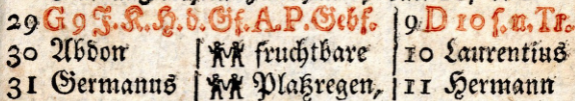 29 G 9 J. K. H. d. Gs. A. P. Gebs. 9 D 10 s. n. Tr.
30 Abdon fruchtbare 10 Laurentius
31 Germanus Platzregen, 11 Hermann